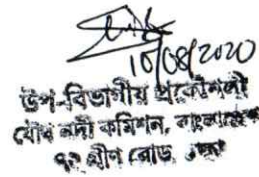 10/08/2020
উপ-বিভাগীয় প্রকৌশলী
যৌথ নদী কমিশন, বাংলাদেশ
৭২ গ্রীন রোড, ঢাকা